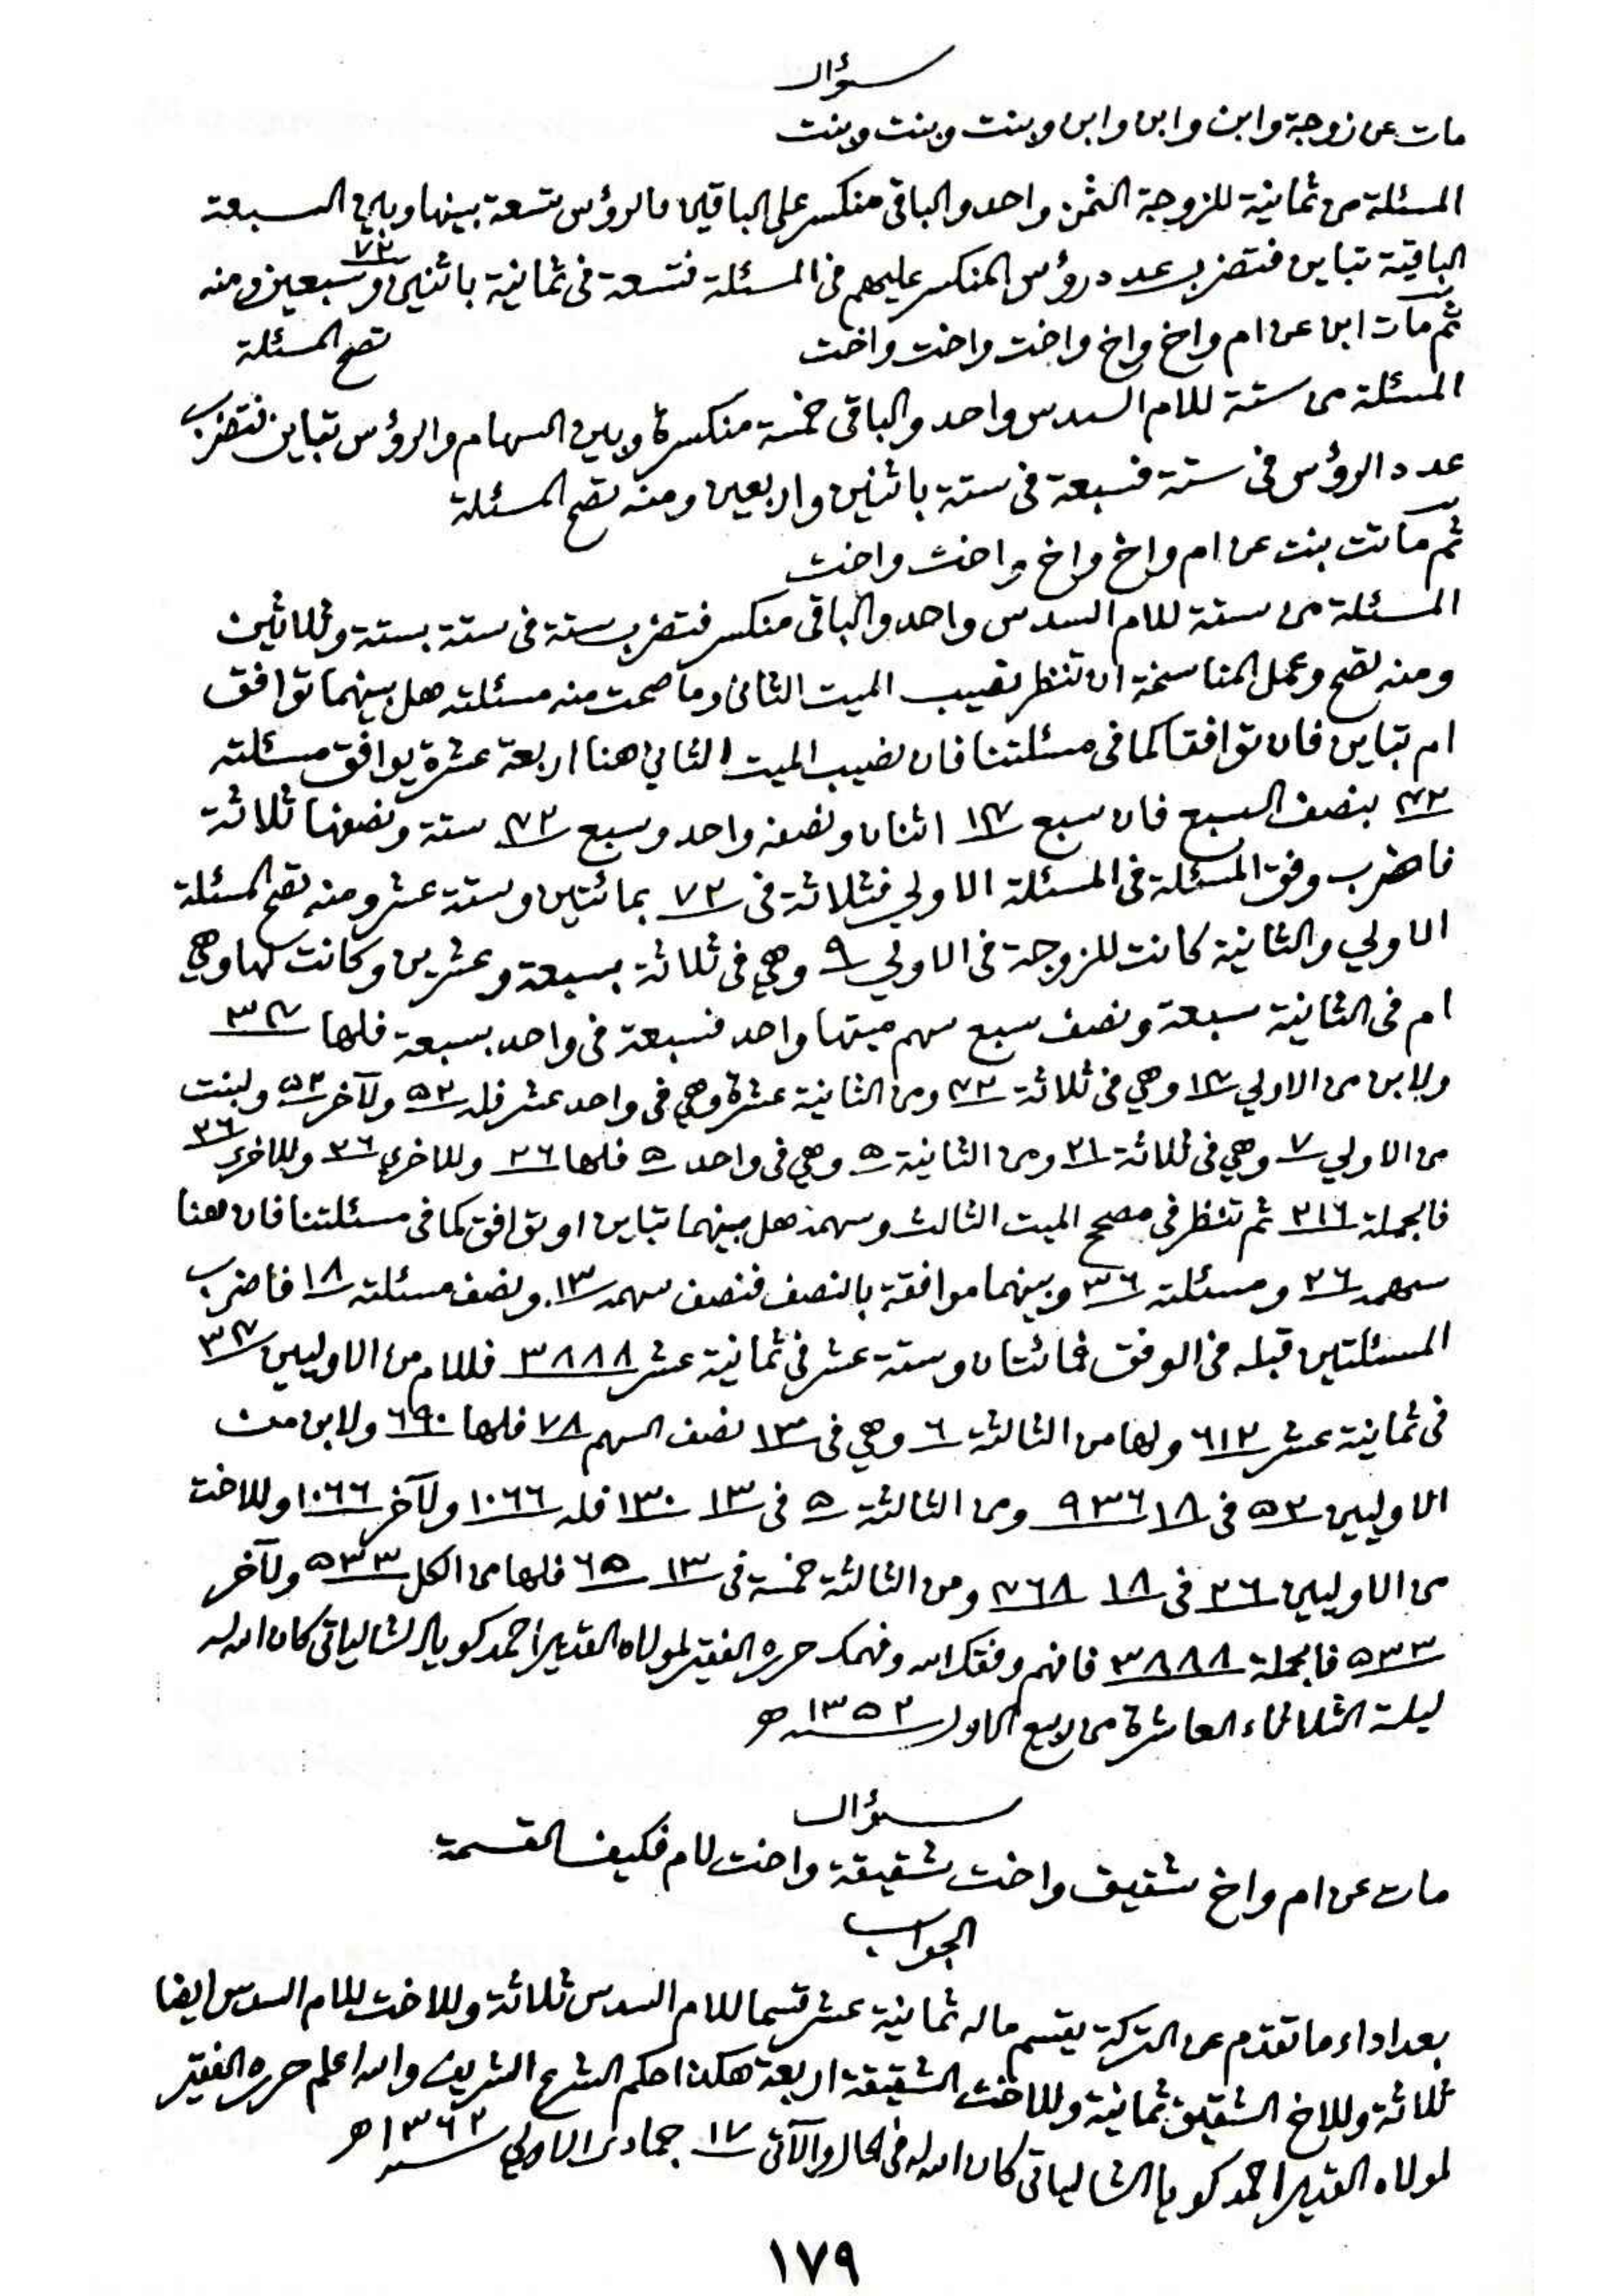 سؤال
مات عن زوجة وابن وابن وابن وبنت وبنت وبنت
المسئلة من ثمانية للزوجة الثمن واحد والباقى منكسر على الباقين فالرؤس تسعة بينها وبين السبعة
الباقية تباين فتضرب عدد رؤس المنكسر عليهم فى المسئلة فتسعة فى ثمانية باثنين وسبعين ٧٢ ومنه
تصح المسئلة
ثم مات ابن عن ام واخ واخ واخت واخت واخت
المسئلة من ستة للام السدس واحد والباقى خمسة منكسرة وبين السهام والرؤس تباين فتضرب
عدد الرؤس فى ستة فسبعة فى ستة باثنين واربعين ومنه تصح المسئلة
ثم ماتت بنت عن ام واخ واخ واخت واخت
المسئلة من ستة للام السدس واحد والباقى منكسر فتضرب ستة فى ستة بستة وثلاثين
ومنه تصح وعمل المناسخة ان تنظر نصيب الميت الثانى وما صحت منه مسئلته هل بينهما توافق
ام تباين فان توافقا كما فى مسئلتنا فان نصيب الميت الثاني هنا اربعة عشرة يوافق مسئلته
٤٢ بنصف السبع فان سبع ١٤ اثنان ونصفه واحد وسبع ٤٢ ستة ونصفها ثلاثة
فاضرب وفق المسئلة فى المسئلة الاولي فثلاثة فى ٧٢ بمائتين وستة عشر ومنه تصح المسئلة
الاولي والثانية كانت للزوجة فى الاولي ٩ وهي فى ثلاثة بسبعة وعشرين وكانت لها وهي
ام فى الثانية سبعة ونصف سبع سهم ميتها واحد فسبعة فى واحد بسبعة فلها ٣٤
ولابن من الاولي ١٤ وهي فى ثلاثة ٤٢ ومن الثانية عشرة وهي فى واحد عشر فله ٥٢ ولآخر ٥٢ ولبنت
من الاولي ٧ وهي فى ثلاثة ٢١ ومن الثانية ٥ وهي فى واحد ٥ فلها ٢٦ وللاخرى ٢٦ وللاخرى ٢٦
فالجملة ٢١٦ ثم تنظر فى مصحح الميت الثالث وسهمه هل بينهما تباين او توافق كما فى مسئلتنا فان هنا
سهمه ٢٦ ومسئلته ٣٦ وبينهما موافقة بالنصف فنصف سهمه ١٣ ونصف مسئلته ١٨ فاضرب
المسئلتين قبله فى الوفق فمائتان وستة عشر فى ثمانية عشر ٣٨٨٨ فللام من الاوليين ٣٤
فى ثمانية عشر ٦١٢ ولها من الثالثة ٦ وهي فى ١٣ نصف السهم ٧٨ فلها ٦٩٠ ولابن من
الاوليين ٥٢ فى ١٨ ٩٣٦ ومن الثالثة ٥ فى ١٣ ١٣٠ فله ١٠٦٦ ولآخر ١٠٦٦ وللاخت
من الاوليين ٢٦ فى ١٨ ٤٦٨ ومن الثالثة خمسة فى ١٣ ٦٥ فلها من الكل ٥٣٣ ولآخر
٥٣٣ فالجملة ٣٨٨٨ فافهم وفقك الله وفهمك حرره الفقير لمولاه القدير احمد كويا الشالياتى كان الله له
ليلة الثلاثاء العاشرة من ربيع الاول ١٣٥٢ سنه ھ
سؤال
مات عن ام واخ شقيق واخت شقيقة واخت لام فكيف القسمة
الجواب
بعد اداء ما تقدم عن التركة يقسم ماله ثمانية عشر قسما للام السدس ثلاثة وللاخت للام السدس ايضا
ثلاثة وللاخ الشقيق ثمانية وللاخت الشقيقة اربعة هكذا حكم الشرع الشريف والله اعلم حرره الفقير
لمولاه القدير احمد كويا الشالياتى كان الله له فى الحال والآتى ١٧ جمادى الاولي ١٣٦٢ سنه ھ
١٧٩